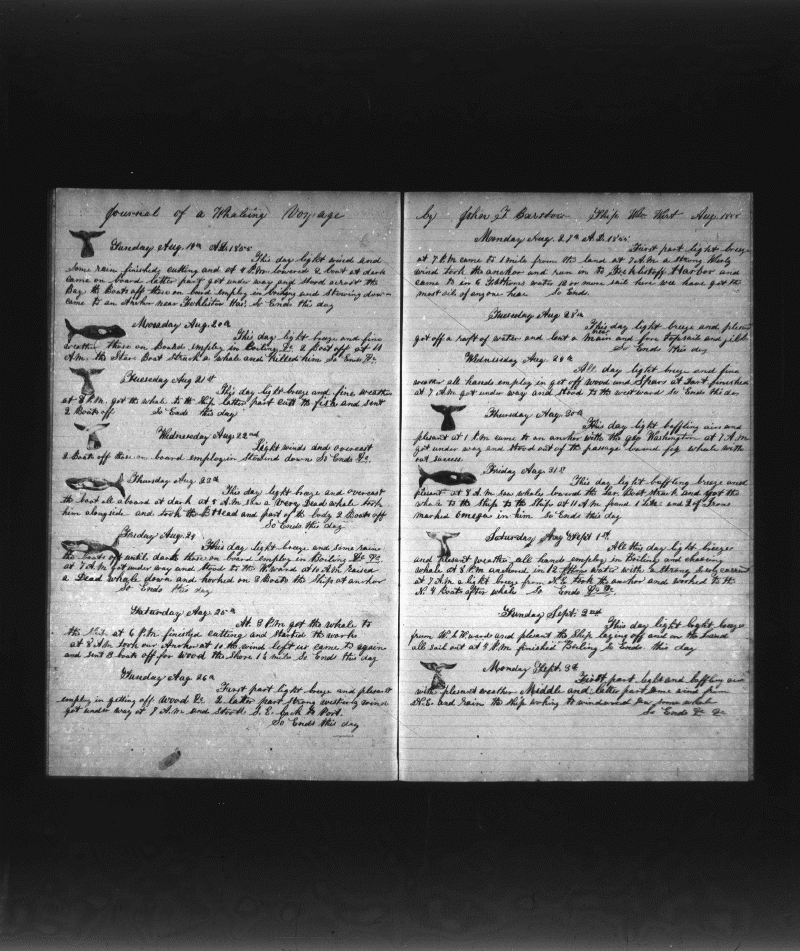 Journal of a Whaling Voyage
Sunday Aug. 19th A.D. 1855
This day light wind and
some rain finished cutting and at 4 P.M. lowered 2 boat at dark
came on board latter part got under way and stood across the
Bay the Boats off those on board employ in boiling and stowing down
came to an Anchor near So Ends this day
Monday Aug. 20th
This day light breeze and fine
weather those on Board employ in Boiling &c 2 Boat off at 10
A.M. the Star Boat Struck a whale and killed him So Ends &c.
Tuesday Aug 21st
This day light breeze and fine weather
at 8 P.M. got the whale to the Ship latter part cut the fish and sent
2 Boats off So Ends this day
Wednesday Aug 22nd
Light winds and overcast
2 Boats off those on board employ in down So Ends &c.
Thursday Aug. 23d
This day light breeze and overcast
the boat all aboard at dark at 9 A.M. saw a Very Dead whale took
him alongside and took the Head and part of the body 2 Boats off
So Ends this day
Friday Aug. 24
This day light breeze and some rain
the boats off until dark those on board employ in Boiling &c &c
at 7 A.M. got under way and Stood to the W.ward at 10 A.M. raised
a Dead whale down and hooked on 3 Boats the Ship at anchor
So Ends this day
Saturday Aug. 25th
At 3 P.M. got the whale to
the Ship at 6 P.M. finished cutting and started the works
at 8 A.M. took our Anchor at 10 the wind left us came to again
and sent 3 boats off for wood the Shore 1½ mile So Ends this day
Sunday Aug 26th
First part light breeze and pleasant
employ in getting off wood &c 2 latter part strong westerly wind
got under way at 7 A.M. and Stood S.E. back to Port.
So Ends this day
by Asher F Barstow Ship Wm Wirt Aug. 1855
Monday Aug. 27th A.D. 1855
First part light breeze
at 7 P.M. came to 1 mile from the land at 7 A.M. a strong Westy
wind took the anchor and run in to Harbor and
came to in 6 Fathoms water 10 or more sail here we have got the
most oil of anyone hear So Ends
Tuesday Aug. 28th
This day light breeze and pleasant
got off a raft of water and bent a new Main and fore Topsail and gibb
So Ends this day
Wednesday Aug. 29th
All day light breeze and fine
weather all hands employ in get off Wood and Spars at Last finished
at 7 A.M. got under way and Stood to the westward So Ends the day
Thursday Aug. 30th
This day light baffling airs and
pleasant at 1 P.M. came to an anchor with the Geo Washington at 7 A.M.
got under way and Stood out of the passage whale with
out success
Friday Aug 31st
This day light baffling breeze and
plesent at 8 A.M. saw whale lowerd the Lar. Boat struck and got the
whale to the Ship at 11 A.M. found 1 and 2 of Irons
marked Omega in him So Ends this day
Saturday Aug Sept 1st
All this day light breeze
and plesent weather all hands employ in Boiling and chaseing
whale at 8 P.M. anchored in 12 fthms water with a strong curent
at 7 A.M. a light breeze from N.E. took the anchor and worked to the
N. 3 Boats after whale So Ends &c &c
Sunday Sept. 2nd
This day light light breeze
from W. to N.wards and plesent the Ship laying off and on the land
all sail out at 9 P.M. finished Boiling So Ends this day
Monday Sept. 3d
First part light and baffling air
with plesant weather Middle and latter part some wind from
N.E. and rain the Ship working to windward saw some whale
So Ends &c &c